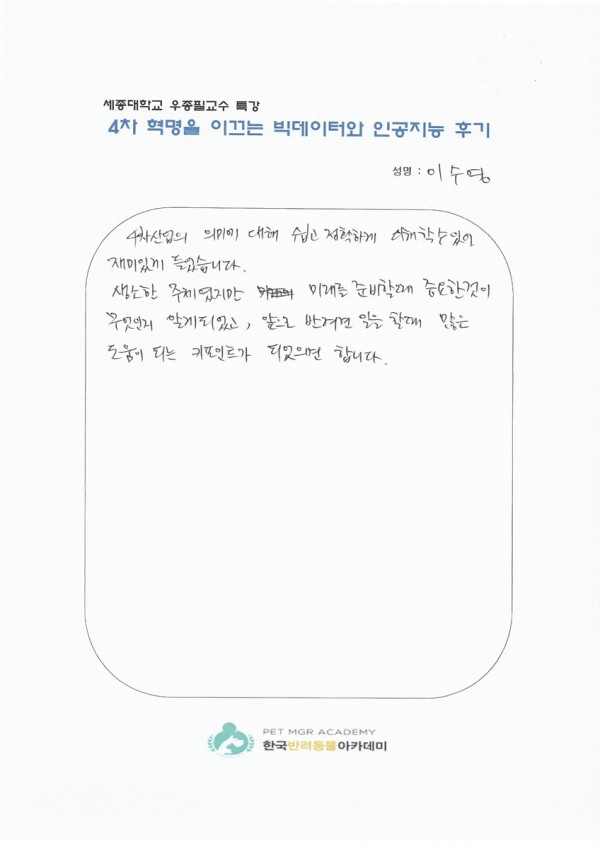 세종대학교 우종필교수 특강
4차 혁명을 이끄는 빅데이터와 인공지능 후기
성명 : 이수영
4차산업의 의미에 대해 쉽고 정확하게 이해할수있어
재미있게 들었습니다.
생소한 주제였지만 미래를 준비할때 중요한것이
무엇인지 알게되었고, 앞으로 반려견 일을 할때 많은
도움이 되는 키포인트가 되었으면 합니다.
PET MGR ACADEMY
한국반려동물아카데미